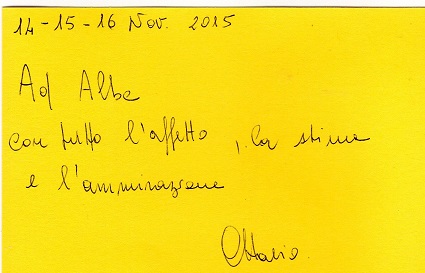 14-15-16 Nov. 2015
Ad Alba
con tutto l'affetto, la stima
e l'ammirazione
Ottavio